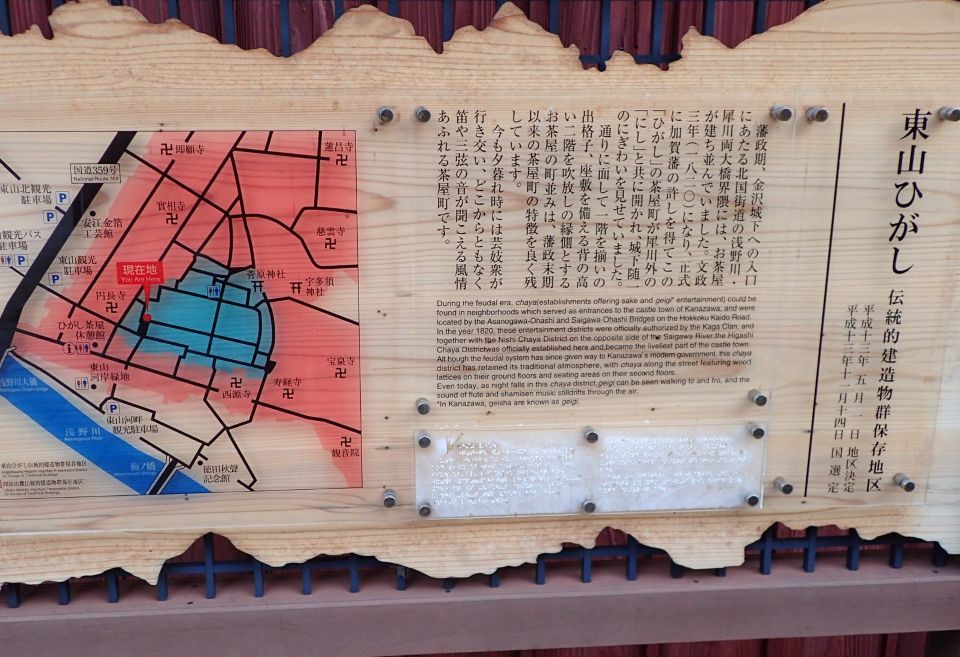 東山ひがし
伝統的建造物群保存地区
平成十三年五月一日 地区決定
平成十三年十一月十四日 国選定
藩政期、金沢城下への入口
にあたる北国街道の浅野川・
犀川両大橋界隈には、お茶屋
が建ち並んでいました。文政
三年(一八二〇)になり、正式
に加賀藩の許しを得てこの
「ひがし」の茶屋町が犀川外の
「にし」と共に開かれ、城下随一
のにぎわいを見せていました。
通りに面して一階を揃いの
出格子、座敷を備える背の高
い二階を吹放しの縁側とする
お茶屋の町並みは、藩政末期
以来の茶屋町の特徴を良く残
しています。
今も夕暮れ時には芸妓衆が
行き交い、どこからともなく
笛や三弦の音が聞こえる風情
あふれる茶屋町です。
During the feudal era, chaya(establishments offering sake and geigi* entertainment) could be
found in neighborhoods which served as entrances to the castle town of Kanazawa, and were
located by the Asanogawa-Ohashi and Saigawa-Ohashi Bridges on the Hokkoku Kaido Road.
In the year 1820, these entertainment districts were officially authorized by the Kaga Clan, and
together with the Nishi Chaya District on the opposite side of the Saigawa River,the Higashi
Chaya Districtwas officially established here and,became the liveliest part of the castle town.
Alt hough the feudal system has since given way to Kanazawa's modern government, this chaya
district has retained its traditional atmosphere, with chaya along the street featuring wood
lattices on their ground floors and seating areas on their second floors.
Even today, as night falls in this chaya district,geigi can be seen walking to and fro, and the
sound of flute and shamisen music stilldrifts through the air.
*In Kanazawa, geisha are known as geigi.
即願寺
蓮昌寺
国道359号
National Route 359
東山北観光
駐車場
P
P
安江金箔
工芸館
實祖寺
慈雲寺
観光バス
駐車場
P
東山観光
駐車場
P
現在地
You Are Here
菅原神社
宇多須
神社
円長寺
ひがし茶屋
休憩館
東山
河岸緑地
宝泉寺
寿経寺
西源寺
浅野川大橋
P
東山河畔
観光駐車場
観音院
浅野川
Asanogawa River
梅ノ橋
Umenohashi Bridge
徳田秋聲
記念館
東山ひがし伝統的建造物群保存地区